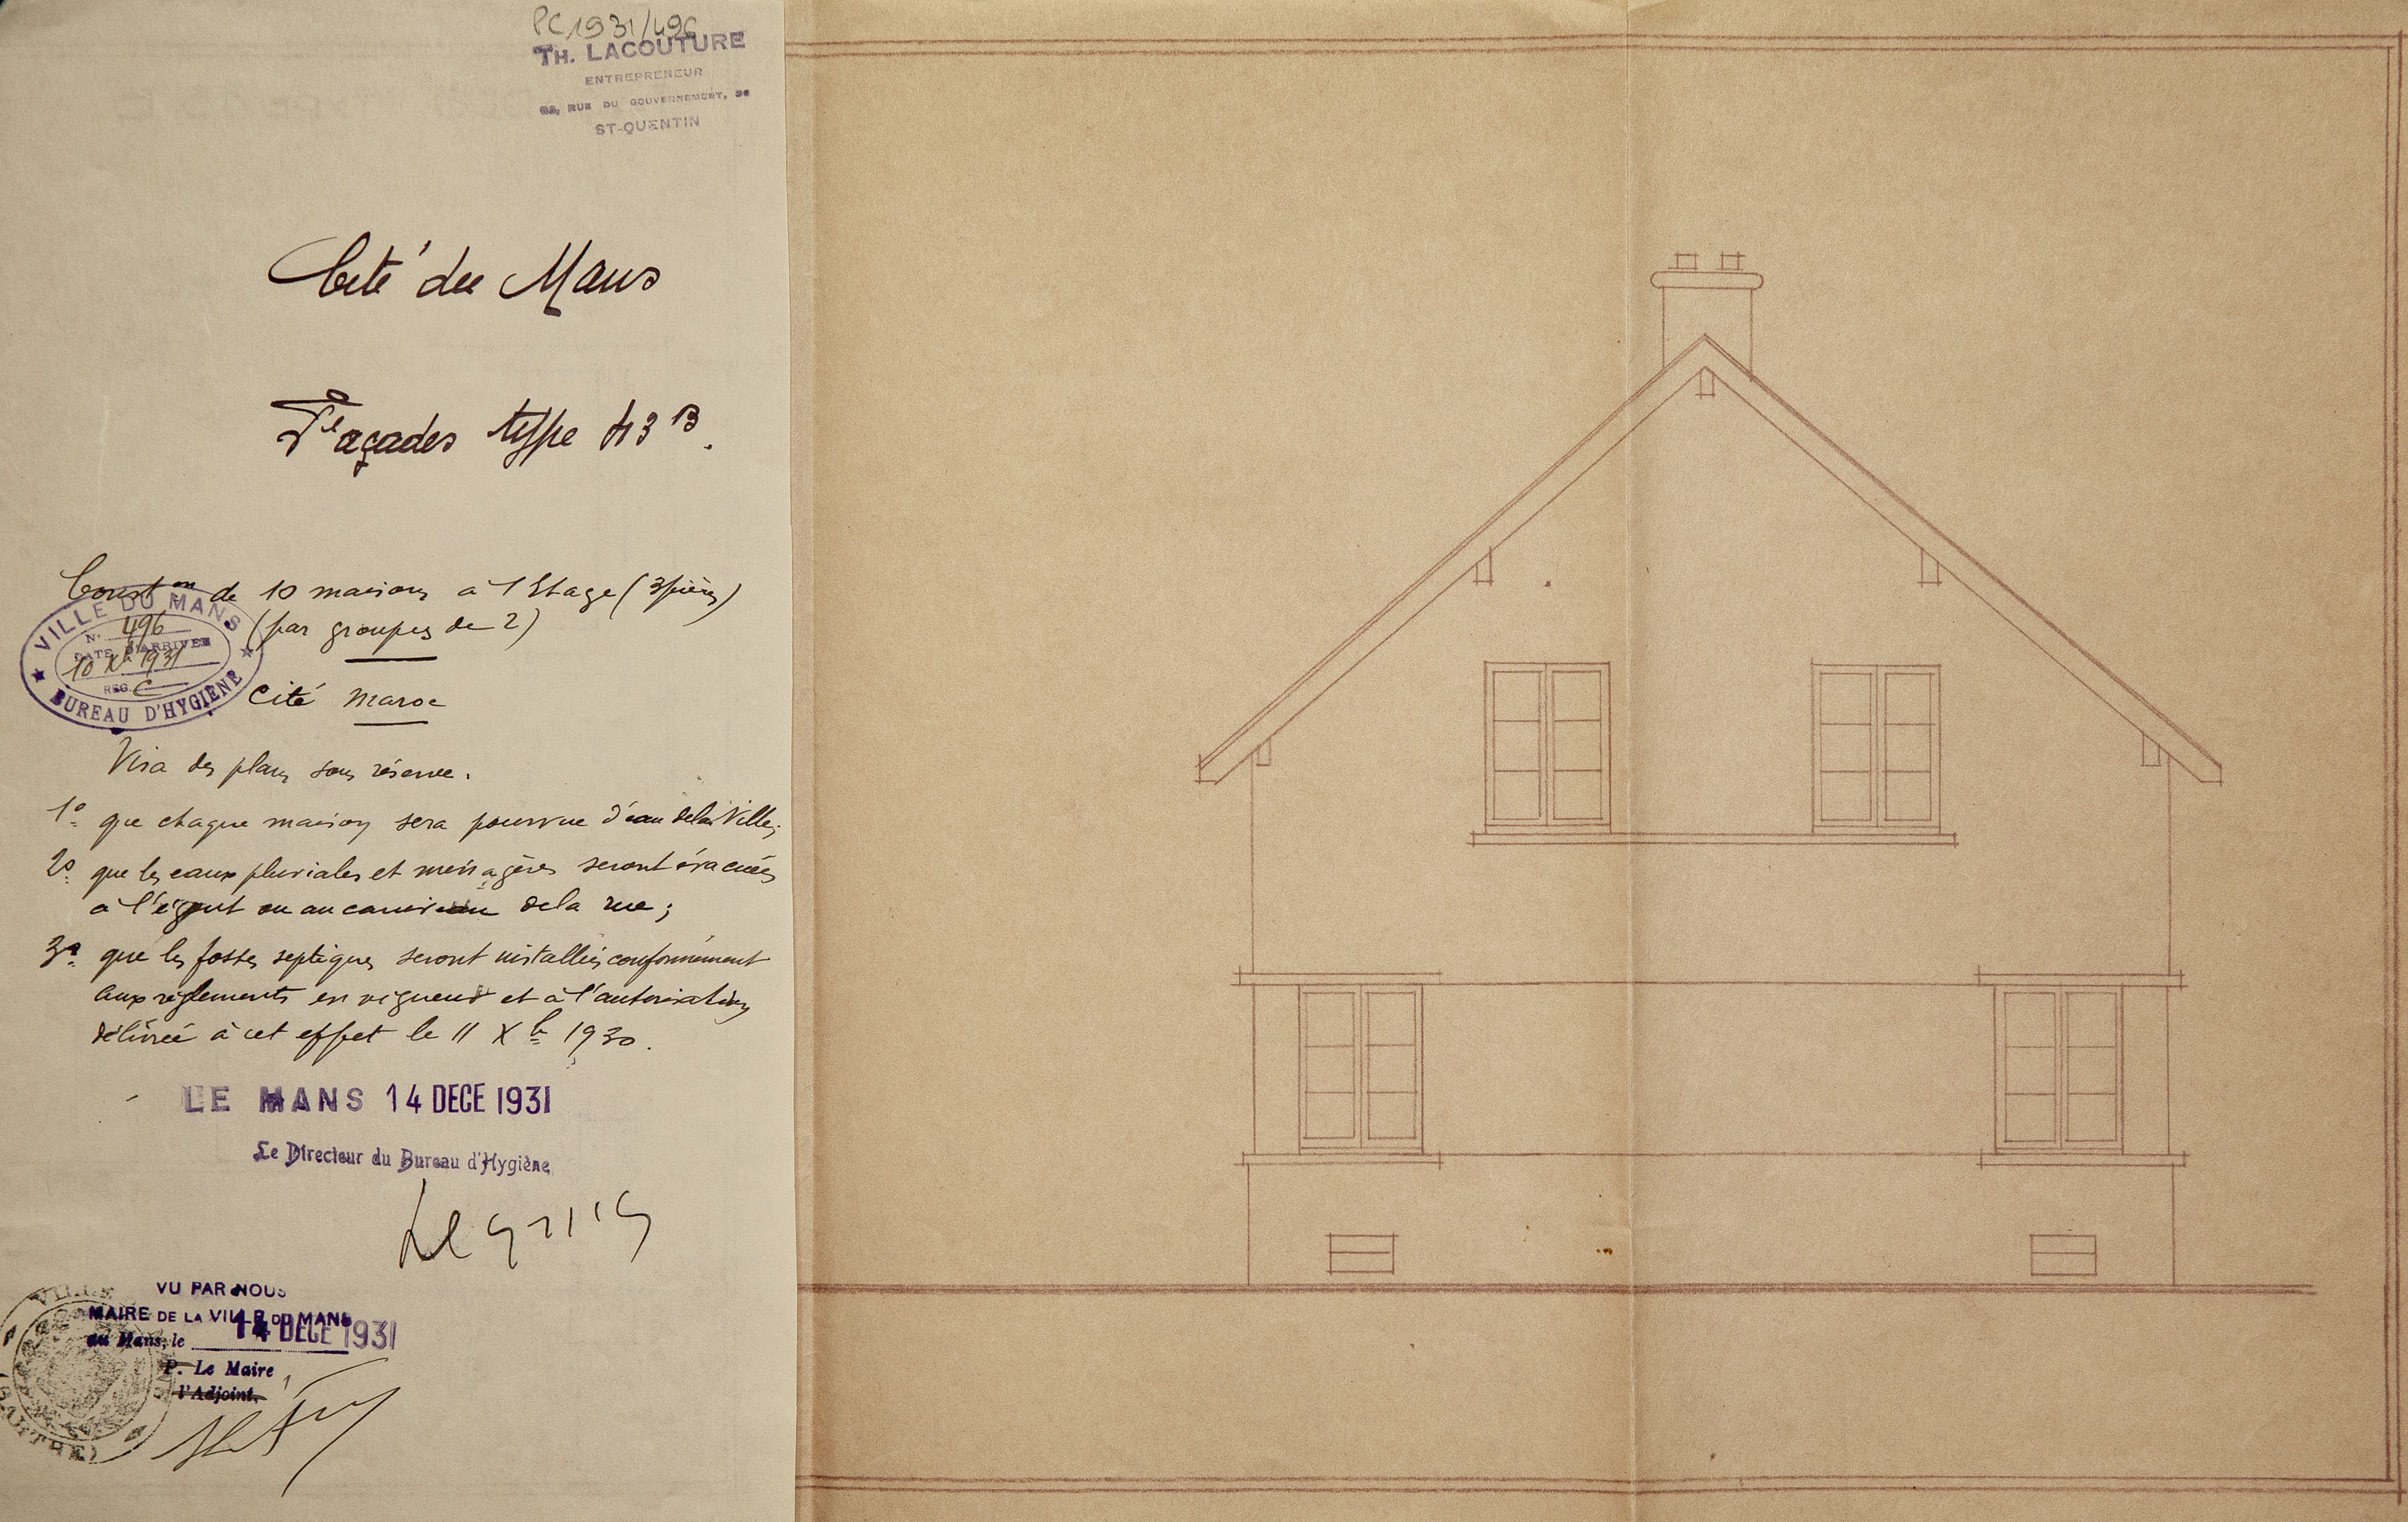 PC 1931/496
TH. LACOUTURE
ENTREPRENEUR
RUE DU GOUVERNEMENT,
ST-QUENTIN
Cité du Mans
Façades type H3 B.
Conston de 10 maisons a 1 Etage (3 pièces)
(par groupes de 2)
VILLE DU MANS
N. 496
DATE D'ARRIVÉE
10 Xbre 1931
REG. C
BUREAU D'HYGIÈNE
Cité Maroc
Visa des plans sous réserve.
1º que chaque maison sera pourvue d'eau dela Ville;
2º que les eaux pluviales et ménagères seront évacuées
à l'égout ou au caniveau dela rue;
3º que les fosses septiques seront installées conformément
aux règlements en vigueur et à l'autorisation
délivrée à cet effet le 11 Xbre 1930.
LE MANS 14 DECE 1931
Le Directeur du Bureau d'Hygiène,
VU PAR NOUS
MAIRE DE LA VILLE DU MANS
au Mans, le 14 DECE 1931
P. Le Maire
l'Adjoint,
VILLE
(SARTHE)